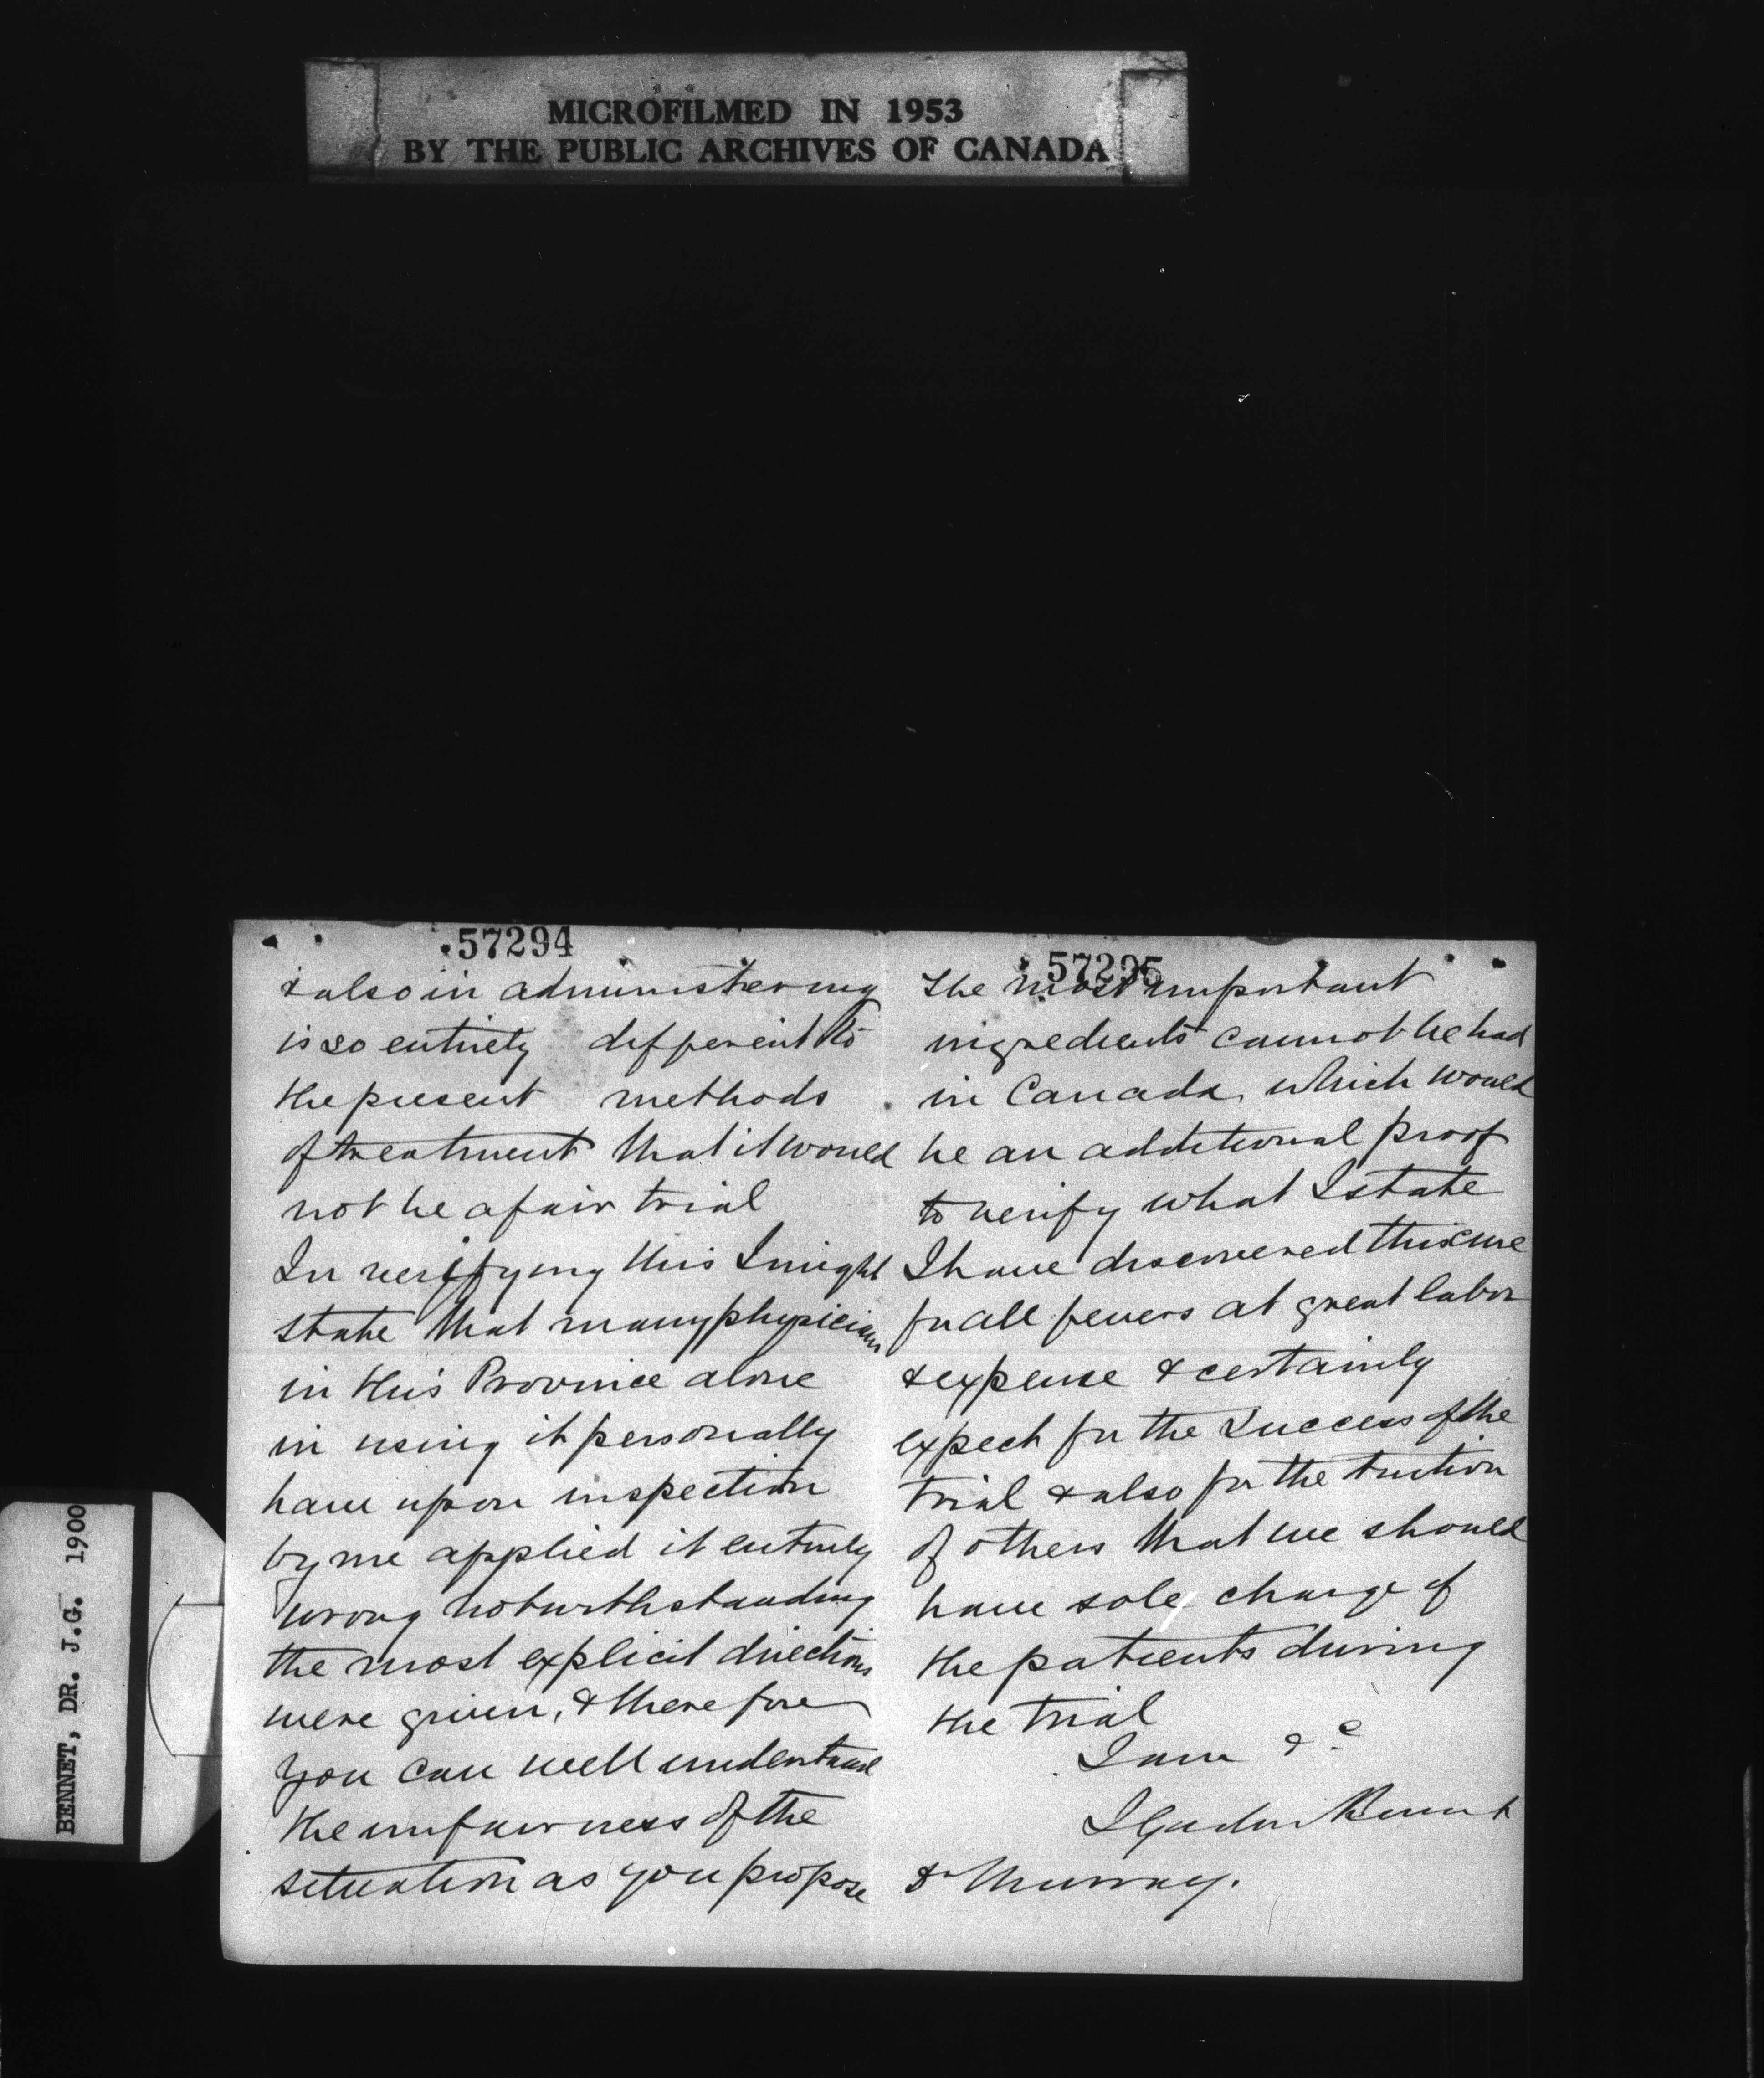 MICROFILMED IN 1953
BY THE PUBLIC ARCHIVES OF CANADA
BENNET, DR. J.G. 1900
57294
& also in administering
is so entirely different to
the present methods
of treatment that it would
not be a fair trial
In verifying this I might
state that many physicians
in this Province alone
in using it personally
have upon inspection
by me applied it entirely
wrong notwithstanding
the most explicit directions
were given, & therefore
you can well understand
the unfairness of the
situation as you propose
57295
the most important
ingredients cannot be had
in Canada, which would
be an additional proof
to verify what I state
I have discovered this cure
for all fevers at great labor
& expense & certainly
expect for the success of the
trial & also for the tuition
of others that we should
have sole charge of
the patients during
the trial
I am &c
J Gordon Bennet
Dr Murray.